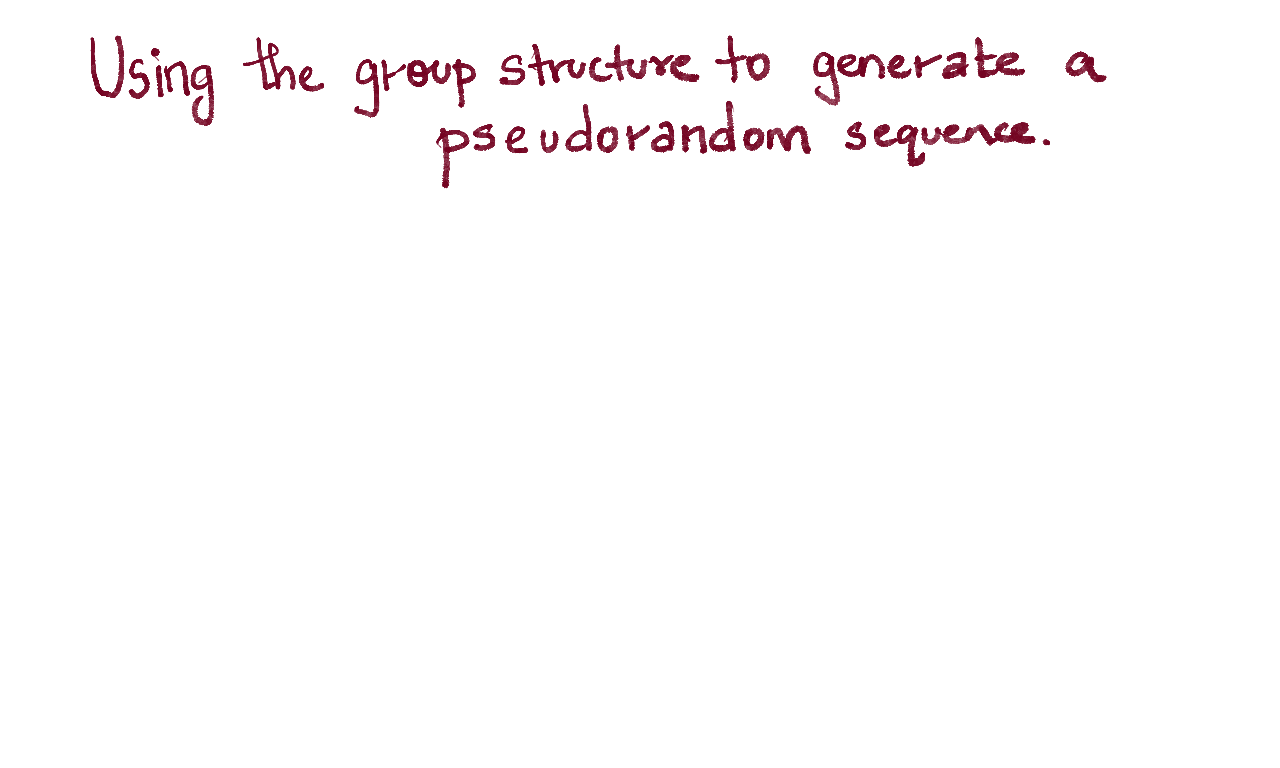 Using the group structure to generate a
pseudorandom sequence.